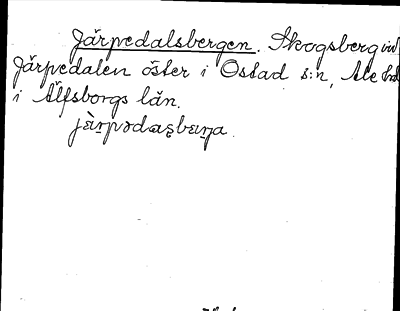 Järpedalsbergen. Skogsberg vid
Järpedalen öster i Östad s:n, Ale hd
i Älfsborgs län.
jä̀r̥pədaʂbæṇa.